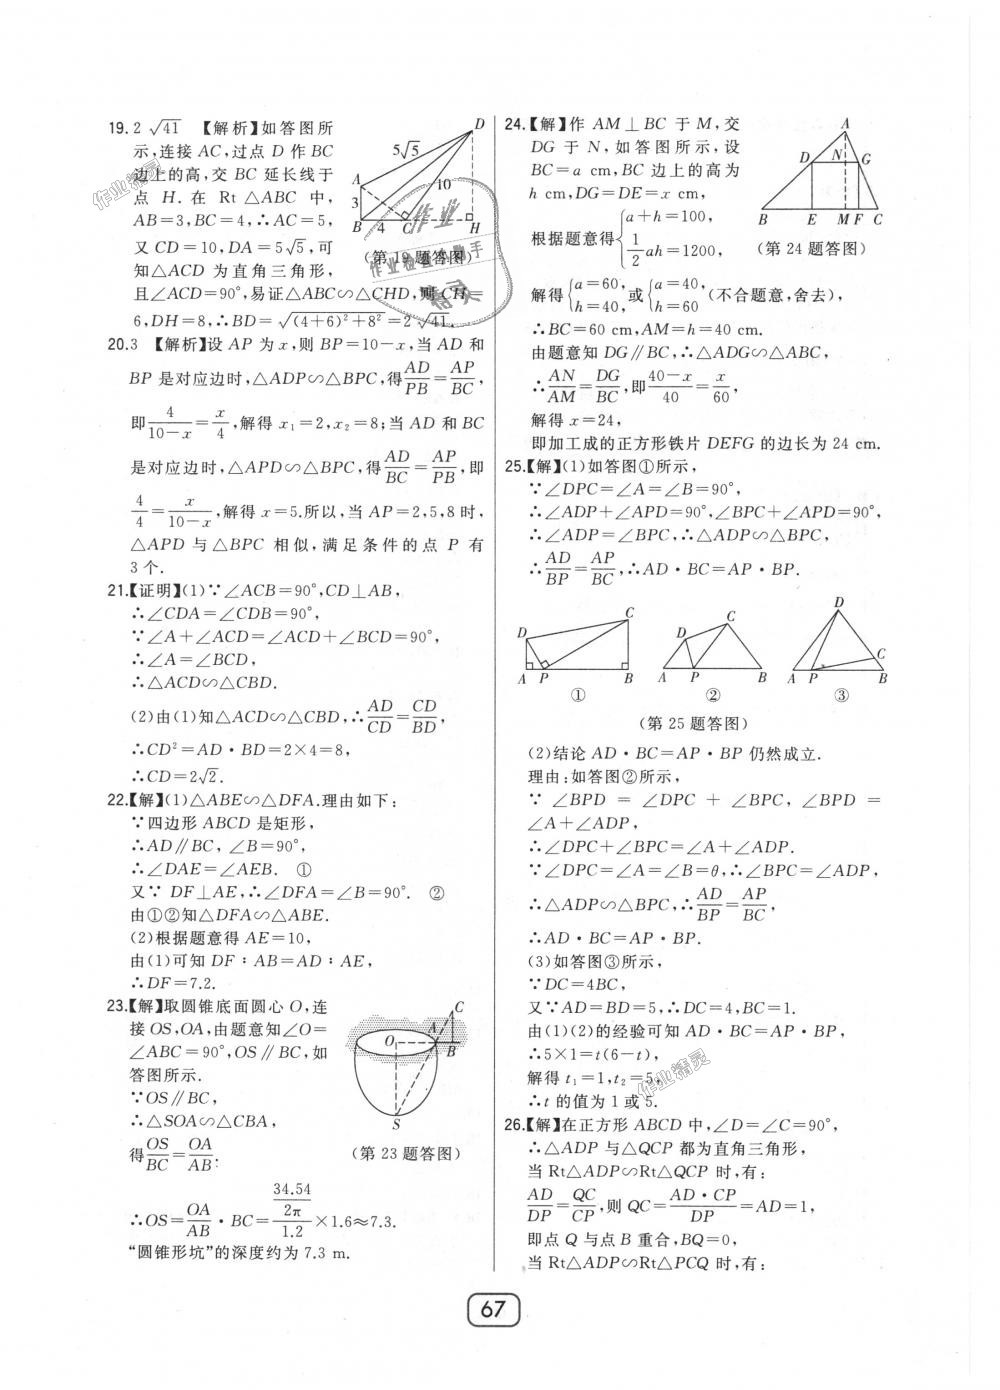 19. 2√41 【解析】如答图所
示,连接 AC,过点 D 作 BC
边上的高,交 BC 延长线于
点 H. 在 Rt△ABC 中,
AB=3,BC=4,∴AC=5,
又 CD=10,DA=5√5,可
知△ACD 为直角三角形,
且∠ACD=90°,易证△ABC∽△CHD,则 CH=
6,DH=8,∴BD=√((4+6)²+8²)=2√41.
D
5√5
A
10
3
B 4 C H
(第 19 题答图)
20. 3 【解析】设 AP 为 x,则 BP=10-x,当 AD 和
BP 是对应边时,△ADP∽△BPC,得AD/PB=AP/BC,
即4/(10-x)=x/4,解得 x₁=2,x₂=8;当 AD 和 BC
是对应边时,△APD∽△BPC,得AD/BC=AP/PB,即
4/4=x/(10-x),解得 x=5.所以,当 AP=2,5,8 时,
△APD 与△BPC 相似,满足条件的点 P 有
3 个.
21.【证明】(1)∵∠ACB=90°,CD⊥AB,
∴∠CDA=∠CDB=90°,
∵∠A+∠ACD=∠ACD+∠BCD=90°,
∴∠A=∠BCD,
∴△ACD∽△CBD.
(2)由(1)知△ACD∽△CBD,∴AD/CD=CD/BD,
∴CD²=AD·BD=2×4=8,
∴CD=2√2.
22.【解】(1)△ABE∽△DFA.理由如下:
∵四边形 ABCD 是矩形,
∴AD∥BC,∠B=90°,
∴∠DAE=∠AEB. ①
又∵ DF⊥AE,∴∠DFA=∠B=90°. ②
由①②知△DFA∽△ABE.
(2)根据题意得 AE=10,
由(1)可知 DF∶AB=AD∶AE,
∴DF=7.2.
23.【解】取圆锥底面圆心 O,连
接 OS,OA,由题意知∠O=
∠ABC=90°,OS∥BC,如
答图所示.
∵OS∥BC,
∴△SOA∽△CBA,
得OS/BC=OA/AB.
C
O A
B
S
(第 23 题答图)
∴OS=OA/AB·BC=(34.54/2π)/1.2×1.6≈7.3.
“圆锥形坑”的深度约为 7.3 m.
24.【解】作 AM⊥BC 于 M,交
DG 于 N,如答图所示,设
BC=a cm,BC 边上的高为
h cm,DG=DE=x cm,
根据题意得{a+h=100, 1/2ah=1200,
A
D N G
B E M F C
(第 24 题答图)
解得{a=60, h=40,或{a=40, h=60(不合题意,舍去),
∴BC=60 cm,AM=h=40 cm.
由题意知 DG∥BC,∴△ADG∽△ABC,
∴AN/AM=DG/BC,即(40-x)/40=x/60,
解得 x=24,
即加工成的正方形铁片 DEFG 的边长为 24 cm.
25.【解】(1)如答图①所示,
∵∠DPC=∠A=∠B=90°,
∴∠ADP+∠APD=90°,∠BPC+∠APD=90°,
∴∠ADP=∠BPC,∴△ADP∽△BPC,
∴AD/BP=AP/BC,∴AD·BC=AP·BP.
D C A P B
D C A P B
D C A P B
① ② ③
(第 25 题答图)
(2)结论 AD·BC=AP·BP 仍然成立.
理由:如答图②所示,
∵ ∠BPD = ∠DPC + ∠BPC, ∠BPD =
∠A+∠ADP,
∴∠DPC+∠BPC=∠A+∠ADP.
∵∠DPC=∠A=∠B=θ,∴∠BPC=∠ADP,
∴△ADP∽△BPC,∴AD/BP=AP/BC,
∴AD·BC=AP·BP.
(3)如答图③所示,
∵DC=4BC,
又∵AD=BD=5,∴DC=4,BC=1.
由(1)(2)的经验可知 AD·BC=AP·BP,
∴5×1=t(6-t),
解得 t₁=1,t₂=5,
∴t 的值为 1 或 5.
26.【解】在正方形 ABCD 中,∠D=∠C=90°,
∴△ADP 与△QCP 都为直角三角形,
当 Rt△ADP∽Rt△QCP 时,有:
AD/DP=QC/CP,则 QC=AD·CP/DP=AD=1,
即点 Q 与点 B 重合,BQ=0,
当 Rt△ADP∽Rt△PCQ 时,有:
67
作业精灵
作业精灵
作业
精灵